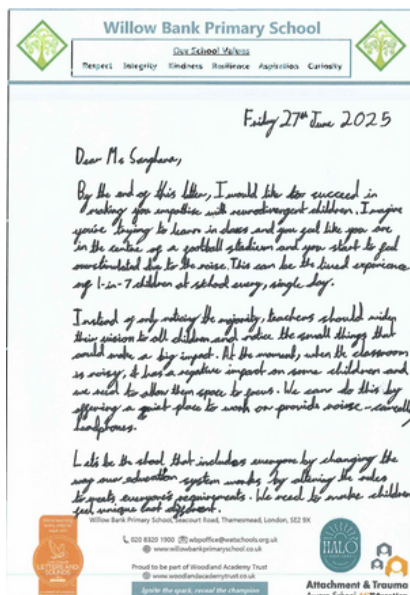 Willow Bank Primary School
Our School Values
Respect Integrity Kindness Resilience Aspiration Curiosity
Friday 27th June 2025
Dear Ms Sanghera,
By the end of this letter, I would like to succeed in
making you empathise with neurodivergent children. Imagine
you're trying to learn in class and you feel like you are
in the centre of a football stadium and you start to feel
overstimulated due to the noise. This can be the lived experience
of 1-in-7 children at school every, single day.
Instead of only noticing the majority, teachers should widen
their vision to all children and notice the small things that
could make a big impact. At the moment, when the classroom
is noisy, it has a negative impact on some children and
we need to allow them space to focus. We can do this by
offering a quiet place to work or provide noise-cancelling
headphones.
Lets be the school that includes everyone by changing the
way our education system works by altering the rules
to meets everyone's requirements. We need to make children
feel unique not different.
Willow Bank Primary School, Seacourt Road, Thamesmead, London, SE2 9X
020 8320 1900 wbpoffice@watschools.org.uk
www.willowbankprimaryschool.co.uk
Proud to be part of Woodland Academy Trust
www.woodlandacademytrust.co.uk
Ignite the spark, reveal the champion
LETTERS AND
SOUNDS
HALO
Attachment & Trauma